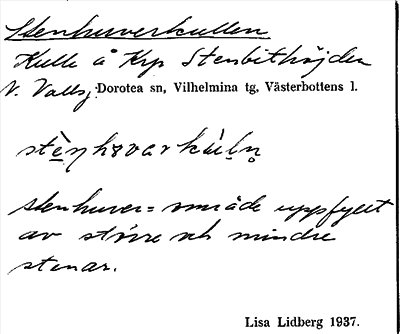 Stenhuverkullen
Kulle å Krp Stenbithöjden
V. Vallsj. Dorotea sn, Vilhelmina tg, Västerbottens l.
stenhuver = område uppfyllt
av större och mindre
stenar.
Lisa Lidberg 1937.